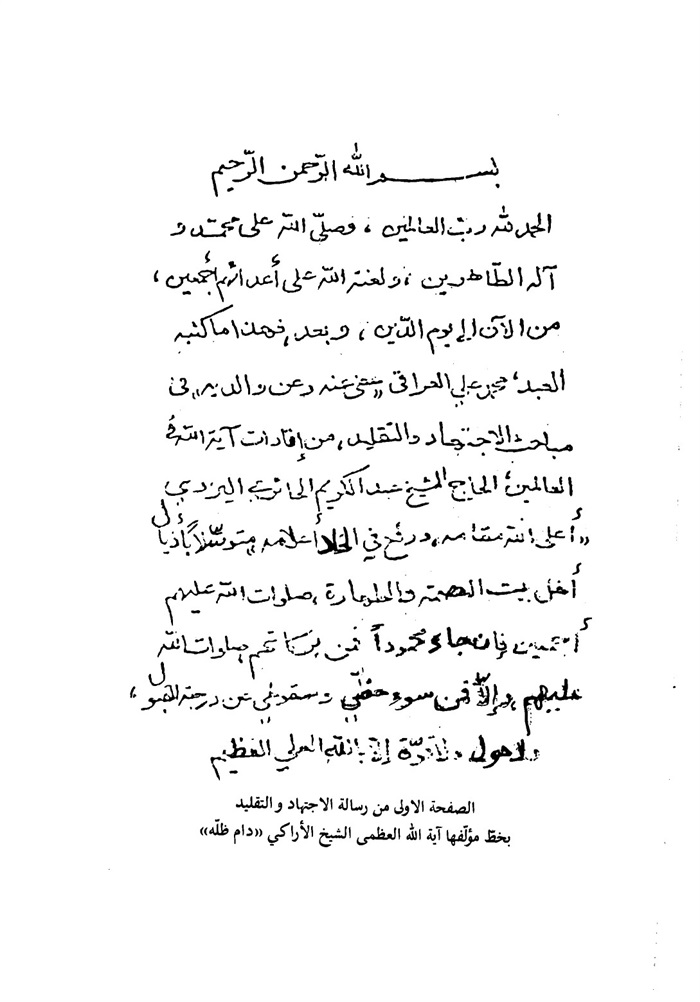 بسم الله الرّحمن الرّحيم
الحمد لله ربّ العالمين ، وصلّى الله على محمّد و
آله الطّاهرين ، ولعنة الله على أعدائهم أجمعين ،
من الآن إلى يوم الدّين ، وبعد، فهذا ما كتبه
العبد، محمد علي العراقي «عفى عنه وعن والديه» في
مباحث الاجتهاد والتقليد، من إفادات آية الله في
العالمين، الحاج الشيخ عبد الكريم الحائري اليزدي
«أعلى الله مقامه، ورفع في الخلد أعلامه» متوسّلاً بأذيال
أهل بيت العصمة والطهارة ، صلوات الله عليهم
أجمعين فإن جاء محموداً فمن بركاتهم صلوات الله
عليهم ، وإلّا فمن سوء حظّي وسقوطي عن درجة القبول ،
ولا حول ولا قوّة إلّا بالله العلي العظيم
الصفحة الاولى من رسالة الاجتهاد والتقليد
بخطّ مؤلّفها آية الله العظمى الشيخ الأراكي «دام ظلّه»